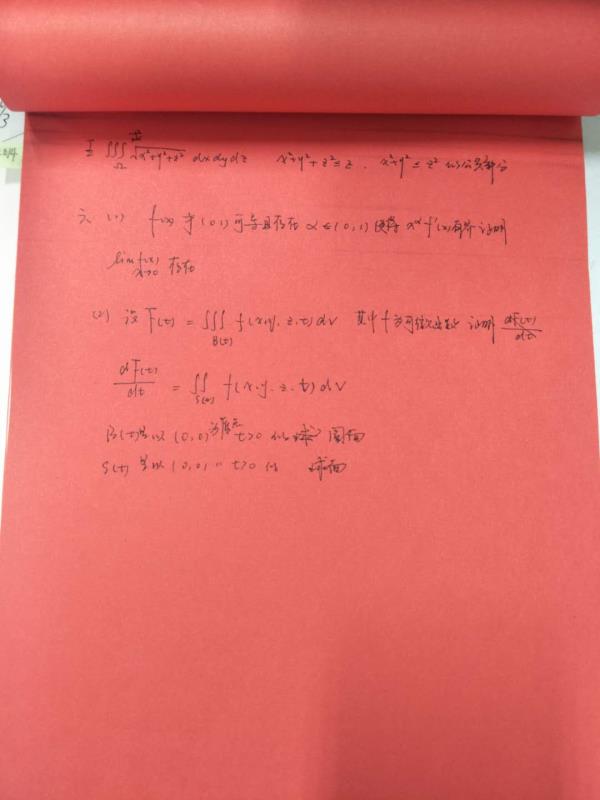 五 ∭_Ω √(x²+y²+z²) dxdydz x²+y²+z²≤z, x²+y²≤z² 的公共部分
六 (1) f(x) 于 (0,1) 可导且存在 α∈(0,1) 使得 x^α f'(x) 有界 证明
lim_{x→0} f(x) 存在
(2) 设 F(t) = ∭_{B(t)} f(x,y,z,t) dV 其中 f 为可微 证明 dF(t)/dt
dF(t)/dt = ∬_{S(t)} f(x,y,z,t) dV
B(t) 是以 (0,0) 为 t>0 的球
S(t) 是以 (0,0) " t>0 的 球面